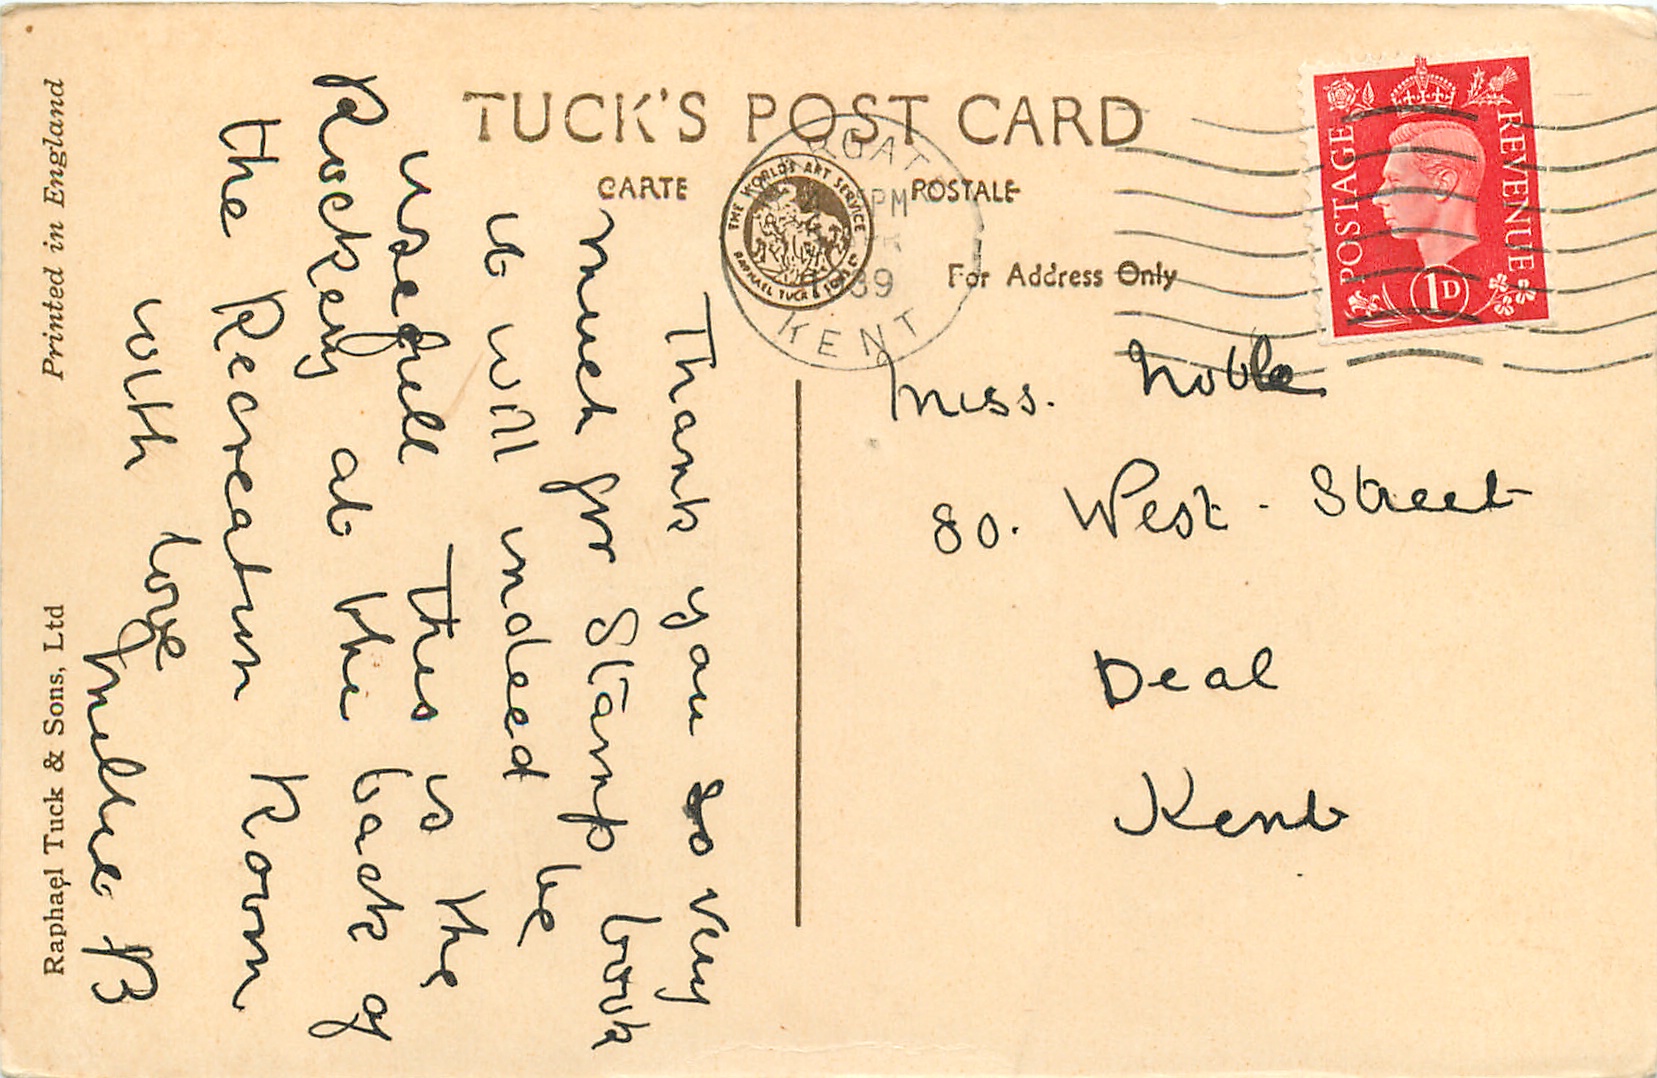 TUCK'S POST CARD
CARTE POSTALE
THE WORLD'S ART SERVICE
RAPHAEL TUCK & SONS LTD
For Address Only
PM
39
KENT
POSTAGE REVENUE
1D
Miss. Noble
80. West. Street
Deal
Kent
Thank you so very
much for Stamp book
it will indeed be
usefull This is the
Rockery at the back of
the Recreation Room
with love
Millie B
Raphael Tuck & Sons, Ltd
Printed in England